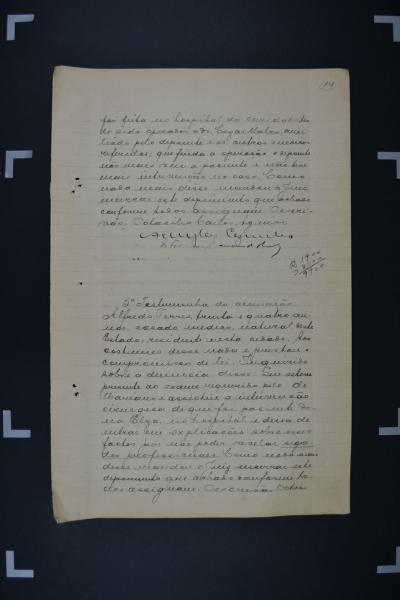 14
foi feita no hospital de caridade
do sido operador o dr. Cezar
liado pelo depoente e os outros medicos
referidos, que finda a operação o depoente
não mais viu a paciente e não teve
mais intervenção no caso. Como
nada mais disse mandou o Juiz
encerrar este depoimento que achado
conforme todos assignam. O escri-
vão, Octacilio Carlos
R 1900
9700
3ª Testemunha da accusação
Alfredo Torres, trinta e quatro an-
nos, casado, medico, natural deste
Estado, residente nesta cidade. Aos
costumes disse nada e prestou o
compromisso da lei. Inquirido
sobre a denuncia disse: Que esteve
presente ao exame requerido pelo dr.
e assistiu a intervenção
cirurgica de que foi paciente do-
na Elza, no hospital e deixa de
entrar em explicações sobre esses
factos por não poder revelar segre-
dos profissionaes. Como nada mais
disse mandou o Juiz encerrar este
depoimento que achado conforme to-
dos assignam. O escrivão Octa